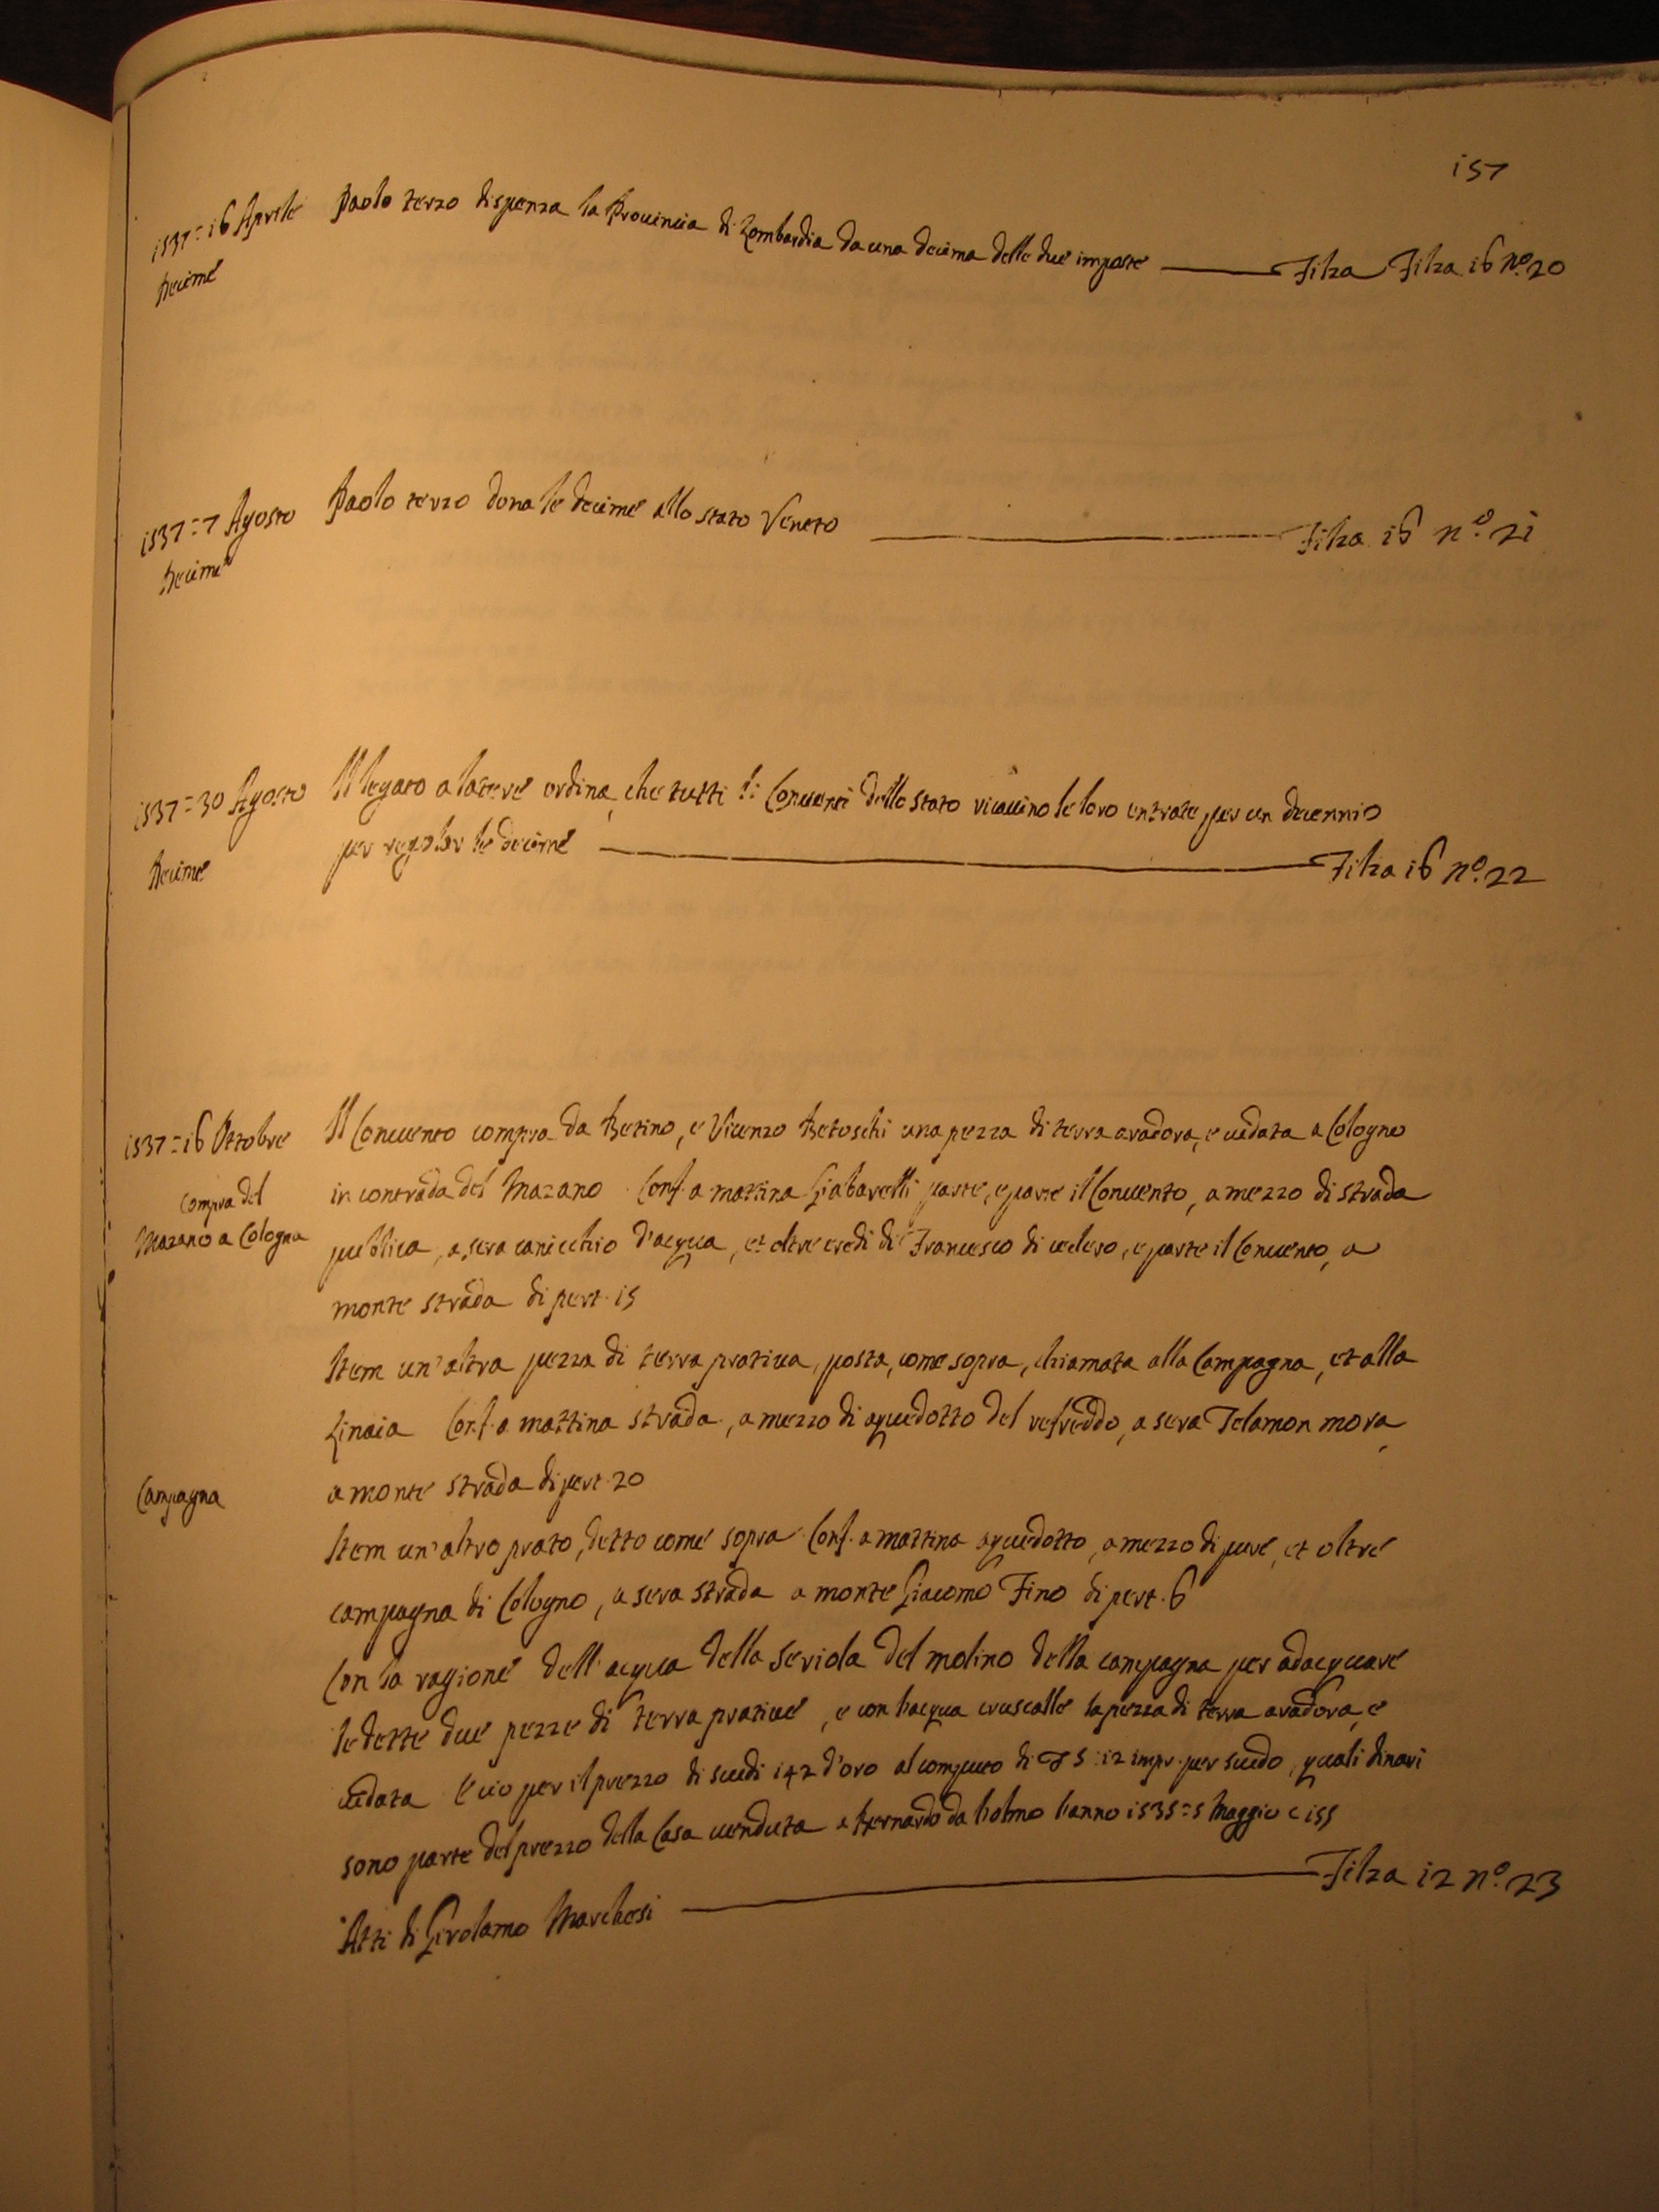 157
1537=16 Aprile Paolo terzo dispenza la Prouincia di Lombardia da una decima delle due imposte Filza Filza 16 nº 20
Decime
1537=7 Agosto Paolo terzo dona le decime allo stato Veneto Filza 16 nº 21
Decime
1537=30 Agosto Il legato a latere ordina, che tutti li Conuenti dello stato ricauino le loro entrate per un decennio
Decime per regolar le decime Filza 16 nº 22
1537=16 Ottobre Il Conuento compra da Betino, e Vicenzo Betoschi una pezza di terra aradora, e uidata a Cologno
Compra del in contrada del Mazano Conf. a mattina Giabarelli parte, e parte il Conuento, a mezzo di strada
Mazano a Cologno publica, a sera canicchio d'acqua, et oltre eredi di Francesco di, e parte il Conuento, a
monte strada di pert. 15
Item un'altra pezza di terra pratiua, posta, come sopra, chiamata alla Campagna, et alla
Linaia Conf. a mattina strada, a mezzo di aquedotto del refreddo, a sera Telamon mora,
Campagna a monte strada di pert. 20
Item un'altro prato, detto come sopra Conf. a mattina aquedotto, a mezzo di, et oltre
campagna di Cologno, a sera strada a monte Giacomo Fino di pert. 6
Con la ragione dell'acqua della seriola del molino della campagna per adacquare
le dette due pezze di terra pratiue, e con l'acqua la pezza di terra aradora, e
uidata E cio per il prezzo di scudi 142 d'oro al computo di 5:12 impr. per scudo, quali dinari
sono parte del prezzo della Casa uenduta a Bernardo da l'olmo l'anno 1535=5 Maggio c 155
Atti di Girolamo Marchesi Filza 12 nº 23